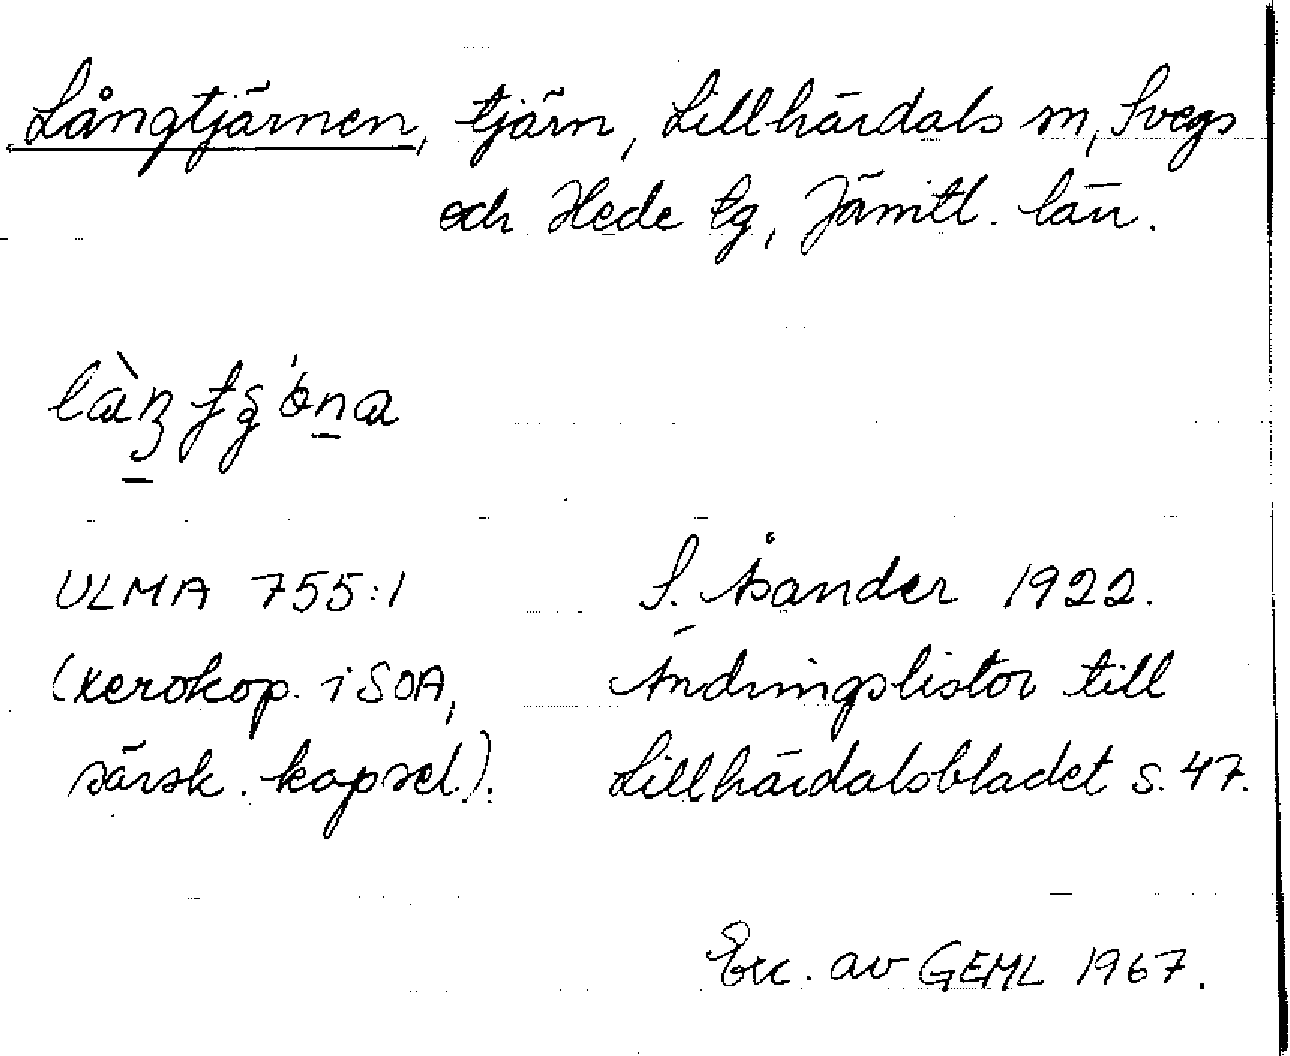 Långtjärnen, tjärn, Lillhärdals sn, Svegs
och Hede tg, Jämtl. län.
ULMA 755:1 S. Åsander 1922.
(xerokop. i SOA, Ändringslistor till
särsk. kapsel.). Lillhärdalsbladet s. 47.
Exc. av GEML 1967.